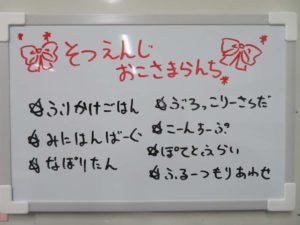 そつえんじ
おこさまらんち
ふりかけごはん
みにはんばーぐ
なぽりたん
ぶろっこりーさらだ
こーんすーぷ
ぽてとふらい
ふるーつもりあわせ